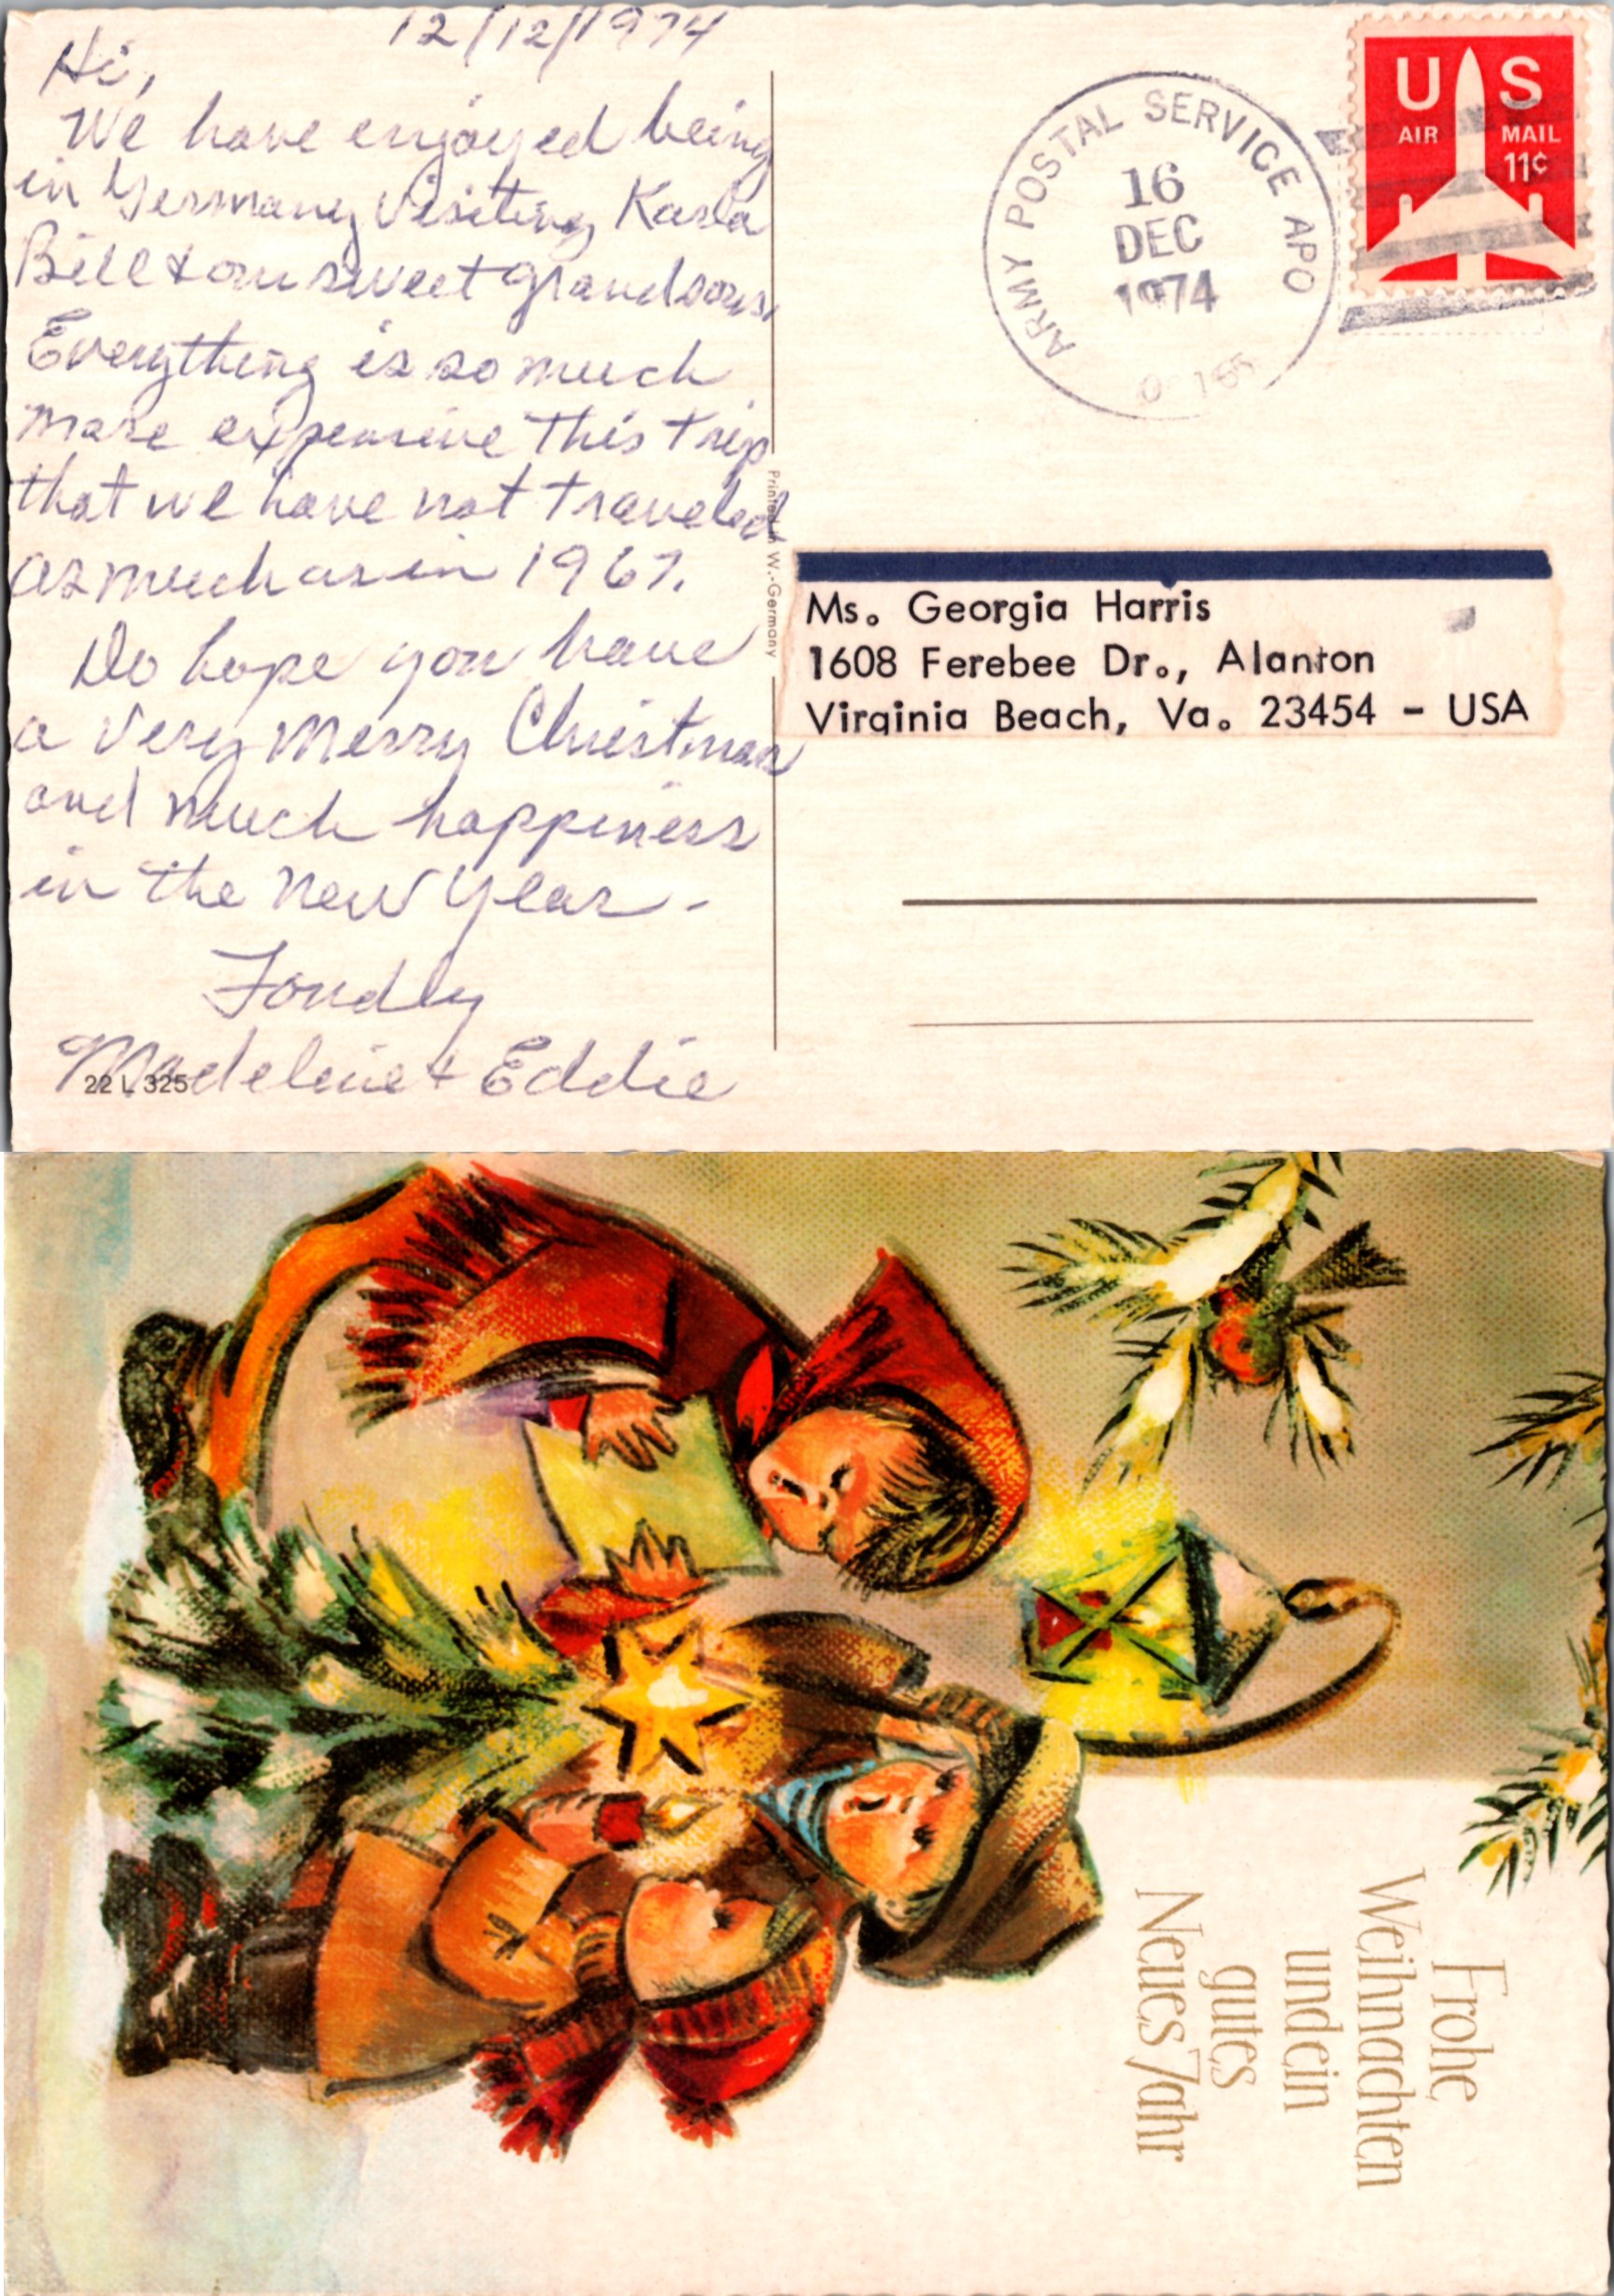 12/12/1974
Hi,
We have enjoyed being
in Germany visiting Karla
Bill & our sweet grandsons.
Everything is so much
more expensive this trip
that we have not traveled
as much as in 1967.
Do hope you have
a very merry Christmas
and much happiness
in the new year -
Fondly
Madeleine & Eddie
22 L 325
Printed in W.-Germany
ARMY POSTAL SERVICE APO
16
DEC
1974
US
AIR MAIL
11¢
Ms. Georgia Harris
1608 Ferebee Dr., Alanton
Virginia Beach, Va. 23454 - USA
Frohe
Weihnachten
und ein
gutes
Neues Jahr